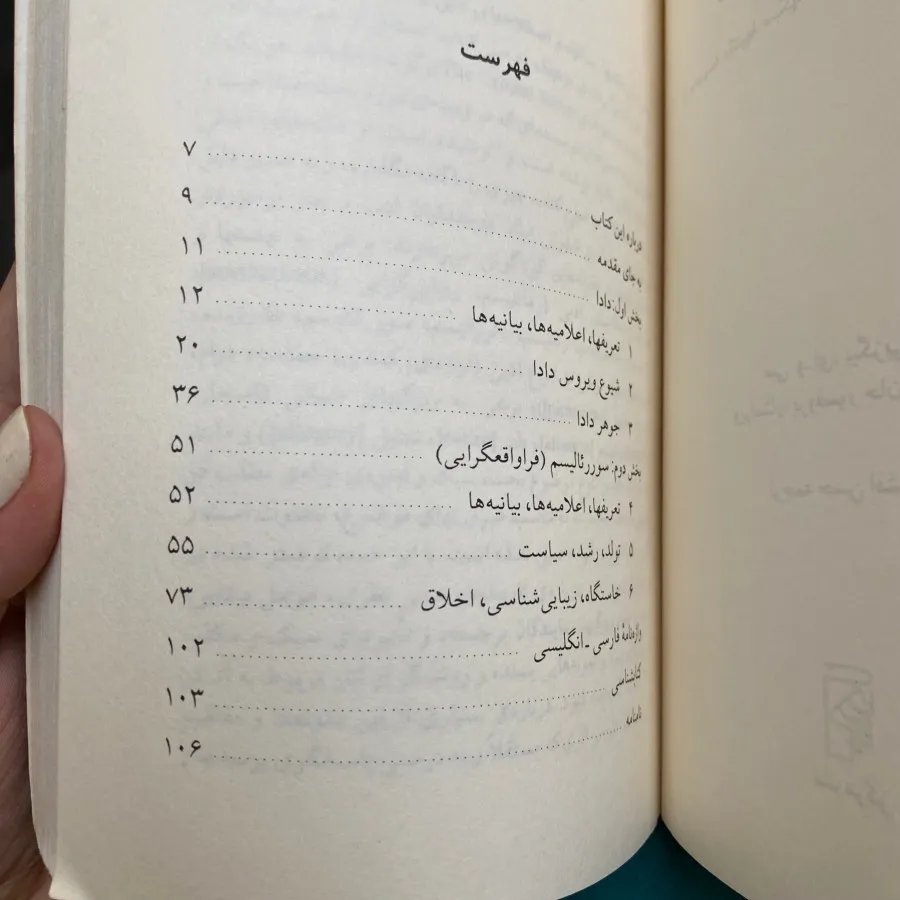 فهرست
درباره این کتاب ۷
به جای مقدمه ۹
بخش اول: دادا ۱۱
۱ تعریفها، اعلامیه‌ها، بیانیه‌ها ۱۲
۲ شیوع ویروس دادا ۲۰
۳ جوهر دادا ۳۶
بخش دوم: سوررئالیسم (فراواقعگرایی) ۵۱
۴ تعریفها، اعلامیه‌ها، بیانیه‌ها ۵۲
۵ تولد، رشد، سیاست ۵۵
۶ خاستگاه، زیبایی‌شناسی، اخلاق ۷۳
واژه‌نامهٔ فارسی - انگلیسی ۱۰۲
کتابشناسی ۱۰۳
نامنامه ۱۰۶